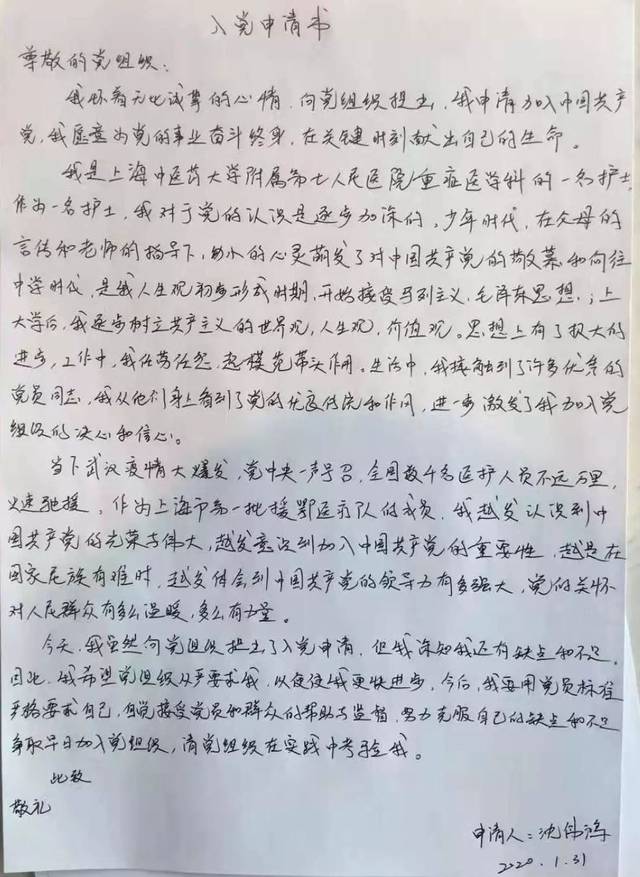 入党申请书
尊敬的党组织：
我怀着无比诚挚的心情，向党组织提出，我申请加入中国共产
党，我愿意为党的事业奋斗终身，在关键时刻献出自己的生命。
我是上海中医药大学附属第七人民医院重症医学科的一名护士，
作为一名护士，我对于党的认识是逐步加深的，少年时代，在父母的
言传和老师的指导下，幼小的心灵萌发了对中国共产党的敬慕和向往
中学时代，是我人生观初步形成时期，开始接受马列主义、毛泽东思想；上
大学后，我逐步树立共产主义的世界观，人生观，价值观。思想上有了极大的
进步，工作中，我任劳任怨，起模范带头作用。生活中，我接触到了许多优秀的
党员同志，我从他们身上看到了党的优良传统和作风，进一步激发了我加入党
组织的决心和信心。
当下武汉疫情大爆发，党中央一声号召，全国数千名医护人员不远万里，
火速驰援。作为上海市第一批援鄂医疗队的成员，我越发认识到中
国共产党的光荣与伟大，越发意识到加入中国共产党的重要性，越是在
国家民族有难时，越发体会到中国共产党的领导力有多强大，党的关怀
对人民群众有多么温暖，多么有力量。
今天，我虽然向党组织提出了入党申请，但我深知我还有缺点和不足，
因此，我希望党组织从严要求我，以使我更快进步，今后，我要用党员标准
严格要求自己，自觉接受党员和群众的帮助与监督，努力克服自己的缺点和不足
争取早日加入党组织，请党组织在实践中考验我。
此致
敬礼
申请人：沈伟鸿
2020.1.31